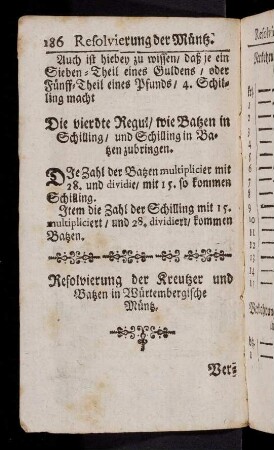 186 Resolvierung der Müntz.
Auch ist hiebey zu wissen / daß je ein
Sieben-Theil eines Guldens / oder
Fünff-Theil eines Pfunds / 4. Schil-
ling macht
Die vierdte Regul / wie Batzen in
Schilling / und Schilling in Ba-
tzen zubringen.
DIe Zahl der Batzen multiplicier mit
28. und dividie / mit 15. so kommen
Schilling.
Item die Zahl der Schilling mit 15.
multipliciert / und 28. dividiert / kommen
Batzen.
Resolvierung der Kreutzer und
Batzen in Würtembergische
Müntz.
Ver-